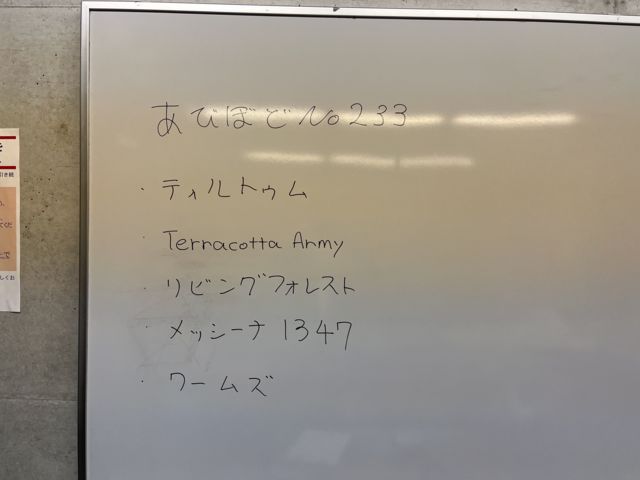 あびぼど No233
・ティルトゥム
・Terracotta Army
・リビングフォレスト
・メッシーナ 1347
・ワームズ